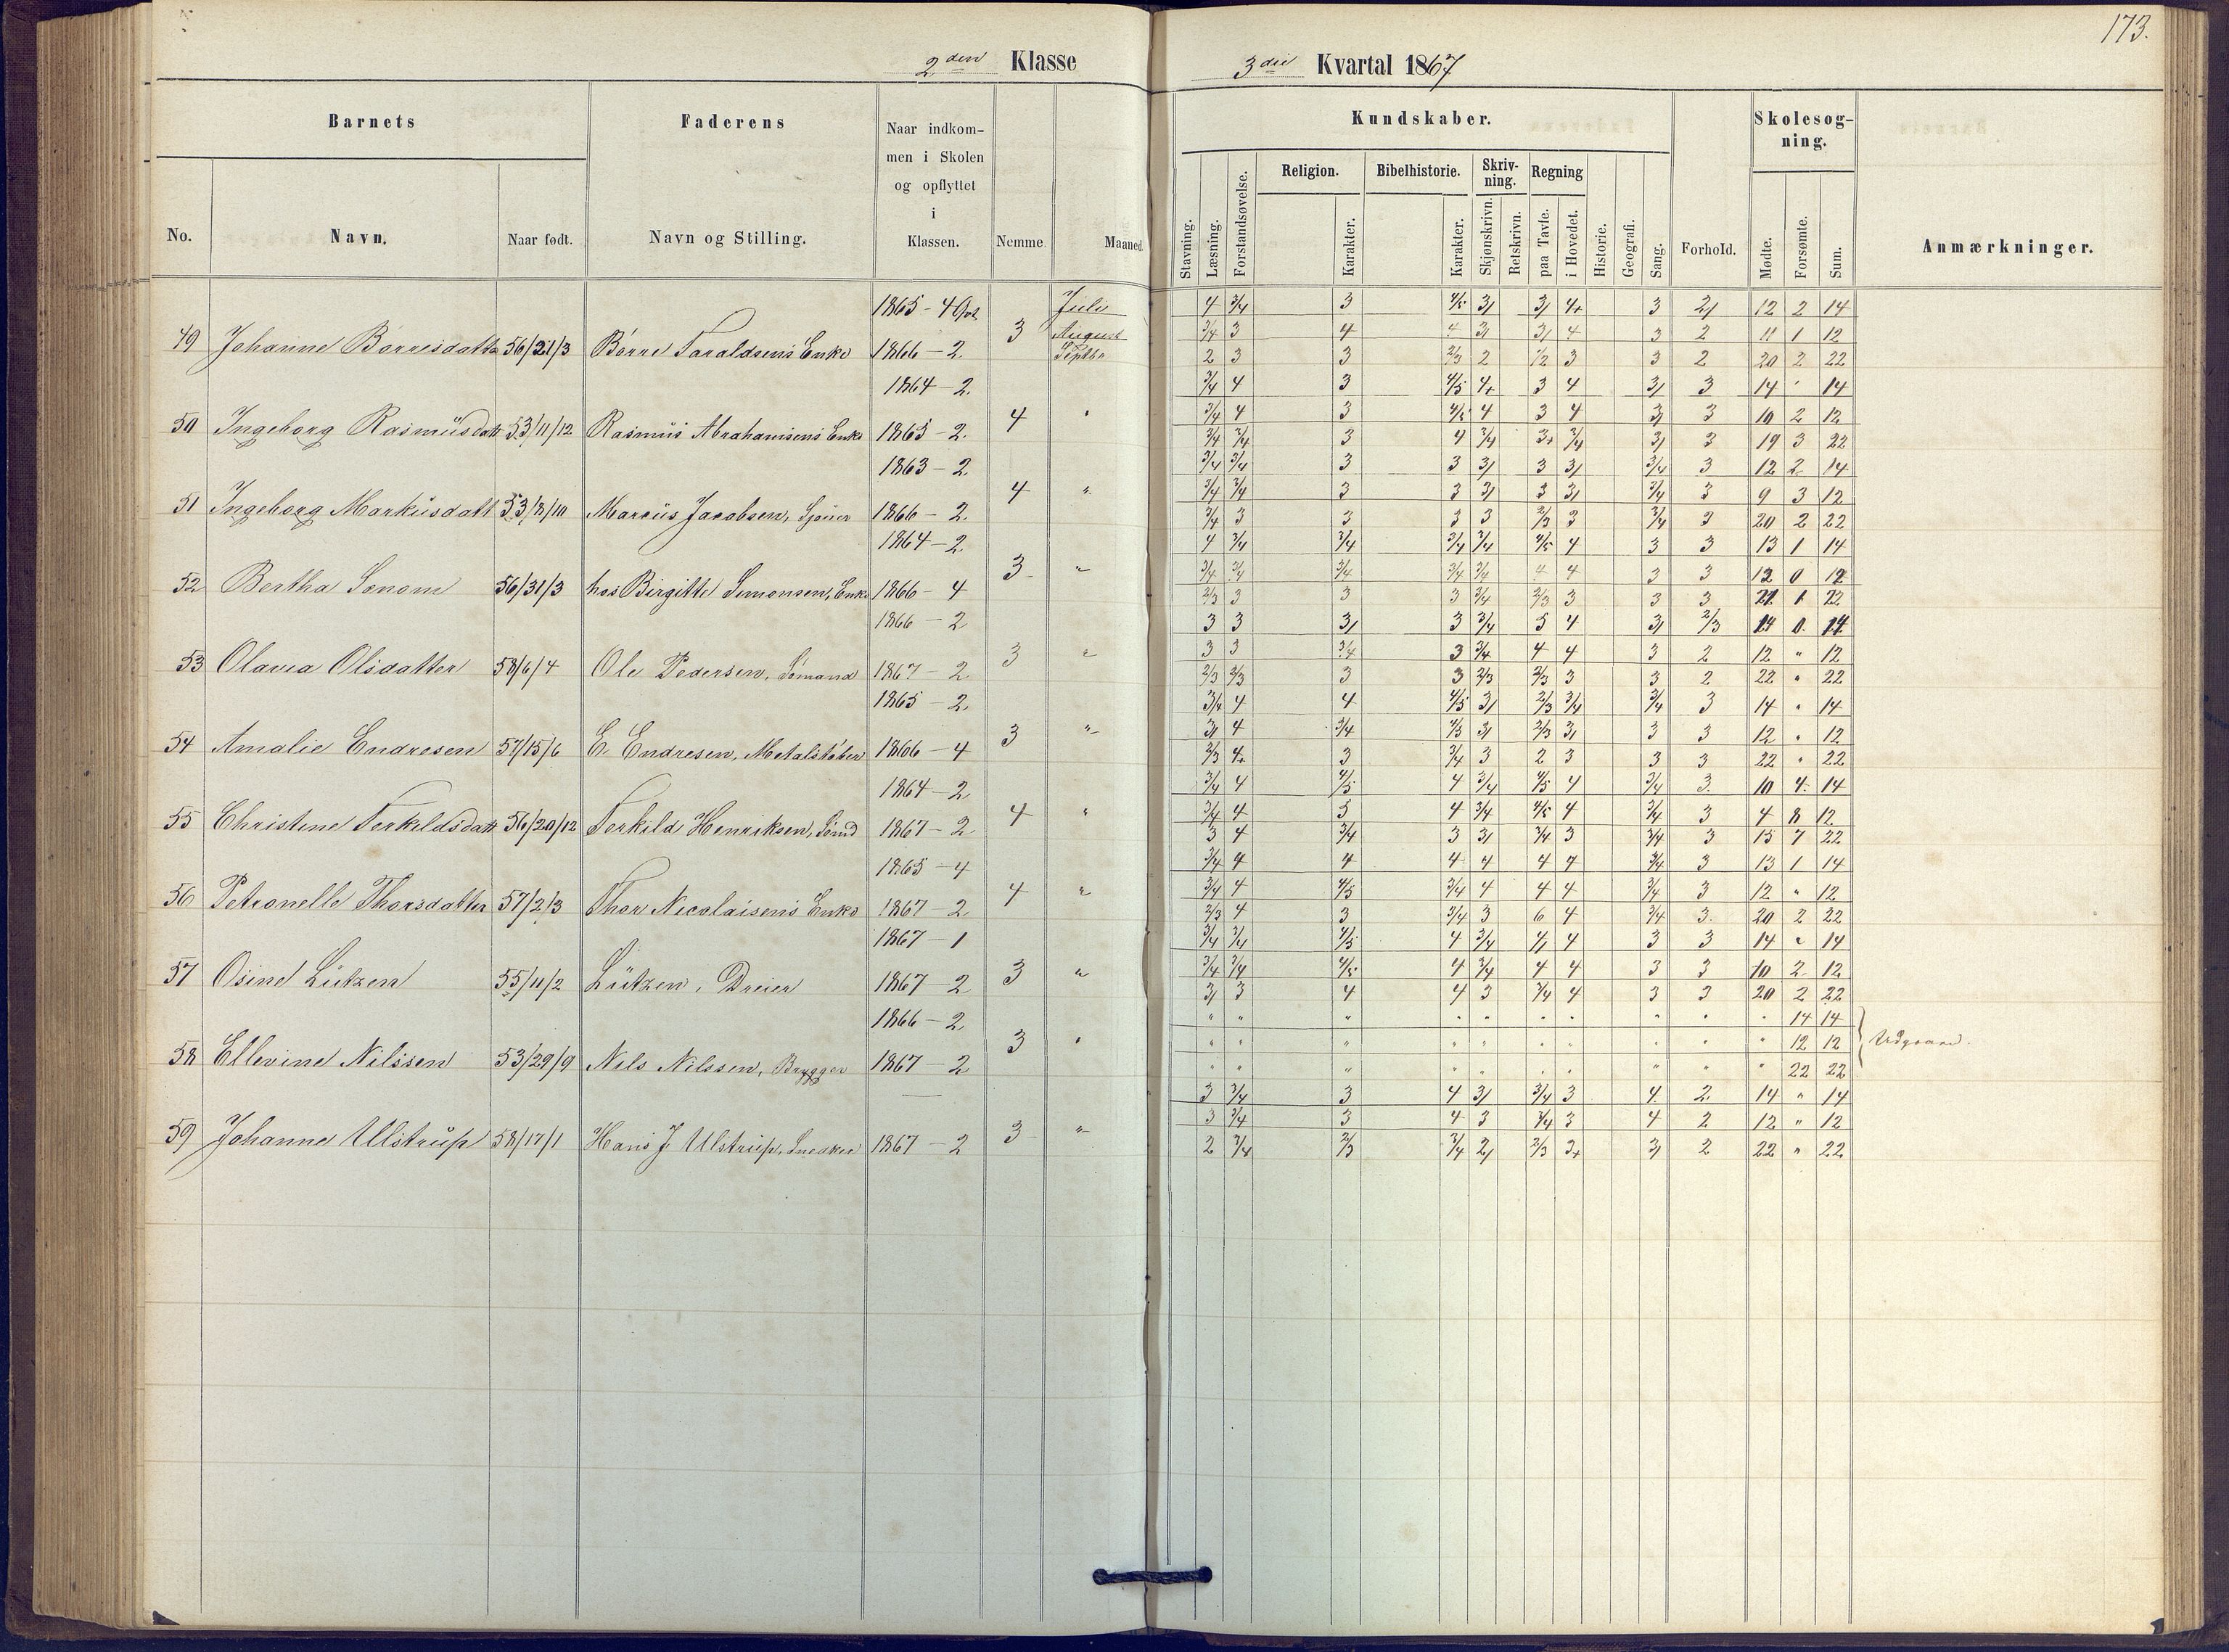 173.
2den Klasse 3die Kvartal 1867
Barnets Faderens Naar indkommen i Skolen og opflyttet i Klassen. Nemme Maaned
No. Navn. Naar født. Navn og Stilling.
Kundskaber. Forhold. Skolesogning. Anmærkninger.
Stavning. Læsning. Forstandsøvelse. Religion. Karakter. Bibelhistorie. Karakter. Skrivning. Skjønskrivn. Retskrivn. Regning paa Tavle. i Hovedet. Historie. Geografi. Sang. Mødte. Forsømte. Sum.
1865 - 4 Juli 4 3/4 3 4/5 3/ 3/ 4+ 3 2/ 12 2 14
49 Johanne Börresdatter 56/21/3 Börre Taraldsens Enke 1866 - 2. 3 August 3/4 3 4 4 3/ 3/ 4 3 2 11 1 12
Septbr 2 3 3 2/3 2 1/2 3 3 2 20 2 22
1864 - 2. 3/4 4 3 4/5 4+ 3 4 3/ 3 14 " 14
50 Ingeborg Rasmusdatt 53/11/12 Rasmus Abrahamsens Enke 1865 - 2. 4 " 3/4 4 3 4/5 4 3 4 3/ 3 10 2 12
3/4 3/4 3 4 3/4 3+ 3/4 3/ 3 19 3 22
1863 - 2. 3/4 3/4 3 3 3/ 3 3/ 3/4 3 12 2 14
51 Ingeborg Markusdatt 53/8/10 Marcus Jacobsen, Sjouer 1866 - 2. 4 " 3/4 3/4 3 3 3/ 3 3/ 3/4 3 9 3 12
3/4 3 3 3 3 2/3 3 3/4 3 20 2 22
1864 - 2. 4 3/4 3/4 3/4 3/4 4/5 4 3 3 13 1 14
52 Bertha 56/31/3 hos Birgitte Simonsen, Enke 1866 - 4 3 " 3/4 3/4 3/4 3/4 3/4 4 4 3 3 12 0 12
2/3 3 3 3 3/4 2/3 3 3 3 21 1 22
1866 - 2 3 3 3/ 3 3/4 5 4 3/ 2/3 14 0 14
53 Olava Olsdatter 58/6/4 Ole Pedersen, Sømand 1867 - 2 3 " 3 3 3/4 3 3/4 4 4 3 2 12 " 12
2/3 2/3 3 3 2/3 2/3 3 3 2 22 " 22
1865 - 2. 3/4 4 4 4/5 3/ 2/3 3/4 3/4 3 14 " 14
54 Amalie Endresen 57/15/6 E. Endresen, Metalstøber 1866 - 4 3 " 3/ 4 3/4 4/5 3/ 2/3 3/ 3 3 12 " 12
2/3 4+ 3 3/4 3 2 3 3 3 22 " 22
1864 - 2 3/4 4 4/5 4 3/4 4/5 4 3/4 3. 10 4 14
55 Christine Terkildsdatt 56/20/12 Terkild Henriksen, Sömd 1867 - 2 4 " 3/4 4 5 4 3/4 4/5 4 3/4 3 4 8 12
3 4 3/4 3 3/ 3/4 3 3/4 3 15 7 22
1865 - 4 3/4 4 4 4 4 4 4 3/4 3 13 1 14
56 Petronelle Thorsdatter 57/2/3 Thor Nicolaisens Enke 1867 - 2 4 " 3/4 4 4/5 3/4 4 4 4 3/4 3 12 " 12
2/3 4 3 3/4 3 6 4 3/4 3. 20 2 22
1867 - 1 3/4 3/4 4/5 4 3/4 4/ 4 3 3 14 " 14
57 Osine Lützen 55/11/2 Lützen, Dreier 1867 - 2 3 " 3/4 3/4 4/5 4 3/4 4 4 3 3 10 2 12
3/ 3 4 4 3 3/4 4 3 3 20 2 22
1866 - 2. " " " " " " " " " " 14 14
58 Ellevine Nilssen 53/29/9 Nils Nilssen, Brygger 1867 - 2 3 " " " " " " " " " " " 12 12 Udgaaen.
" " " " " " " " " " 22 22
3 3/4 3 4 3/ 3/4 3 4 2. 14 " 14
59 Johanne Ulstrup 58/17/1 Hans J Ulstrup, Snedker 1867 - 2 3 " 3 3/4 3 4 3 3/4 3 4 2 12 " 12
2 3/4 2/3 3/4 2/ 2/3 3+ 3/ 2 22 " 22